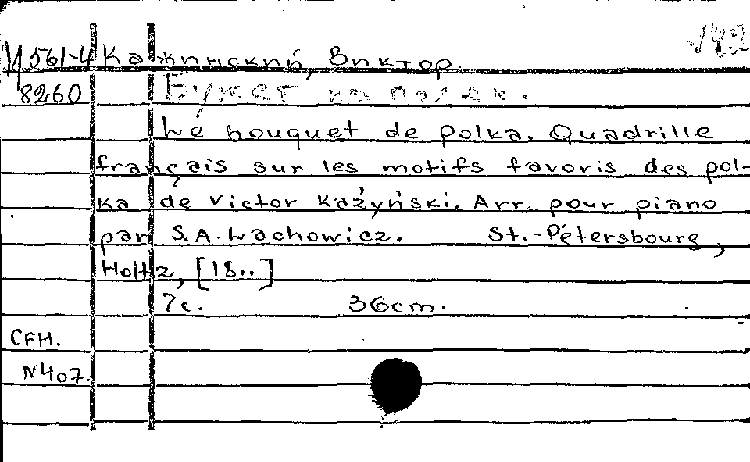 И 561-4 Кажинский, Виктор
8260 Букет из полек.
Le bouquet de polka. Quadrille
français sur les motifs favoris des pol-
ka de Victor Każyński. Arr. pour piano
par S.A. Lachowicz. St.-Pétersbourg,
Holtz, [18..]
7с. 36cm.
СFН.
N407.